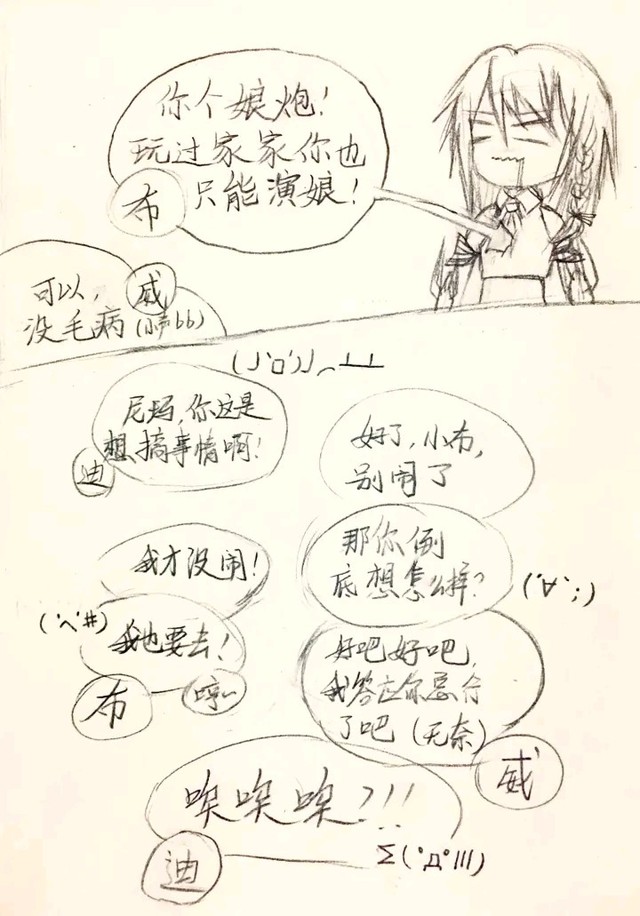 你个娘炮!
玩过家家你也
只能演娘!
布
可以,
没毛病(小声bb)
威
(╯`□')╯⌒┴┴
尼玛,你这是
想搞事情啊!
迪
好了,小布,
别闹了
我才没闹!
那你倒
底想怎么样?
(´∀`;)
(`ヘ´#)
我也要去!
布
哼~
好吧好吧,
我答应你总行
了吧(无奈)
威
唉唉唉?!!
迪
Σ(ﾟдﾟlll)